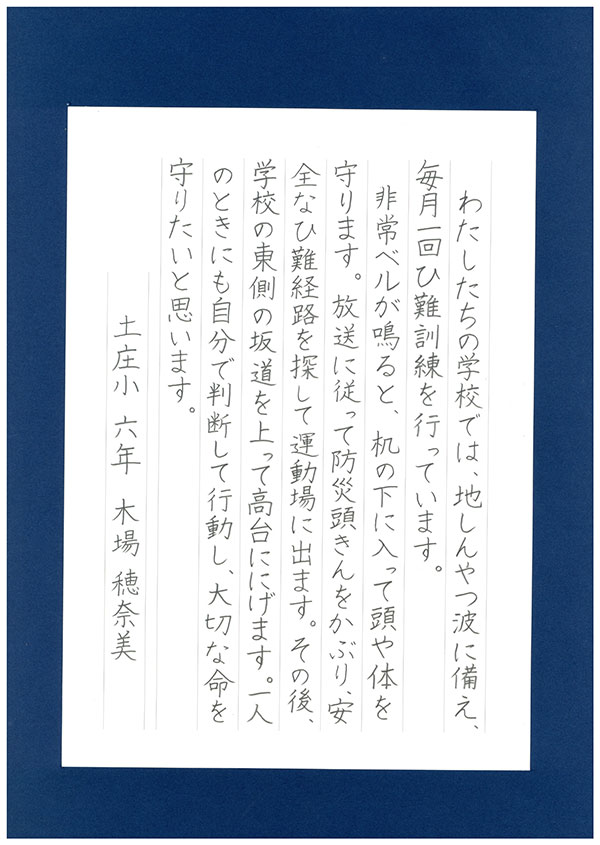 わたしたちの学校では、地しんやつ波に備え、
毎月一回ひ難訓練を行っています。
非常ベルが鳴ると、机の下に入って頭や体を
守ります。放送に従って防災頭きんをかぶり、安
全なひ難経路を探して運動場に出ます。その後、
学校の東側の坂道を上って高台ににげます。一人
のときにも自分で判断して行動し、大切な命を
守りたいと思います。
土庄小 六年 木場 穂奈美